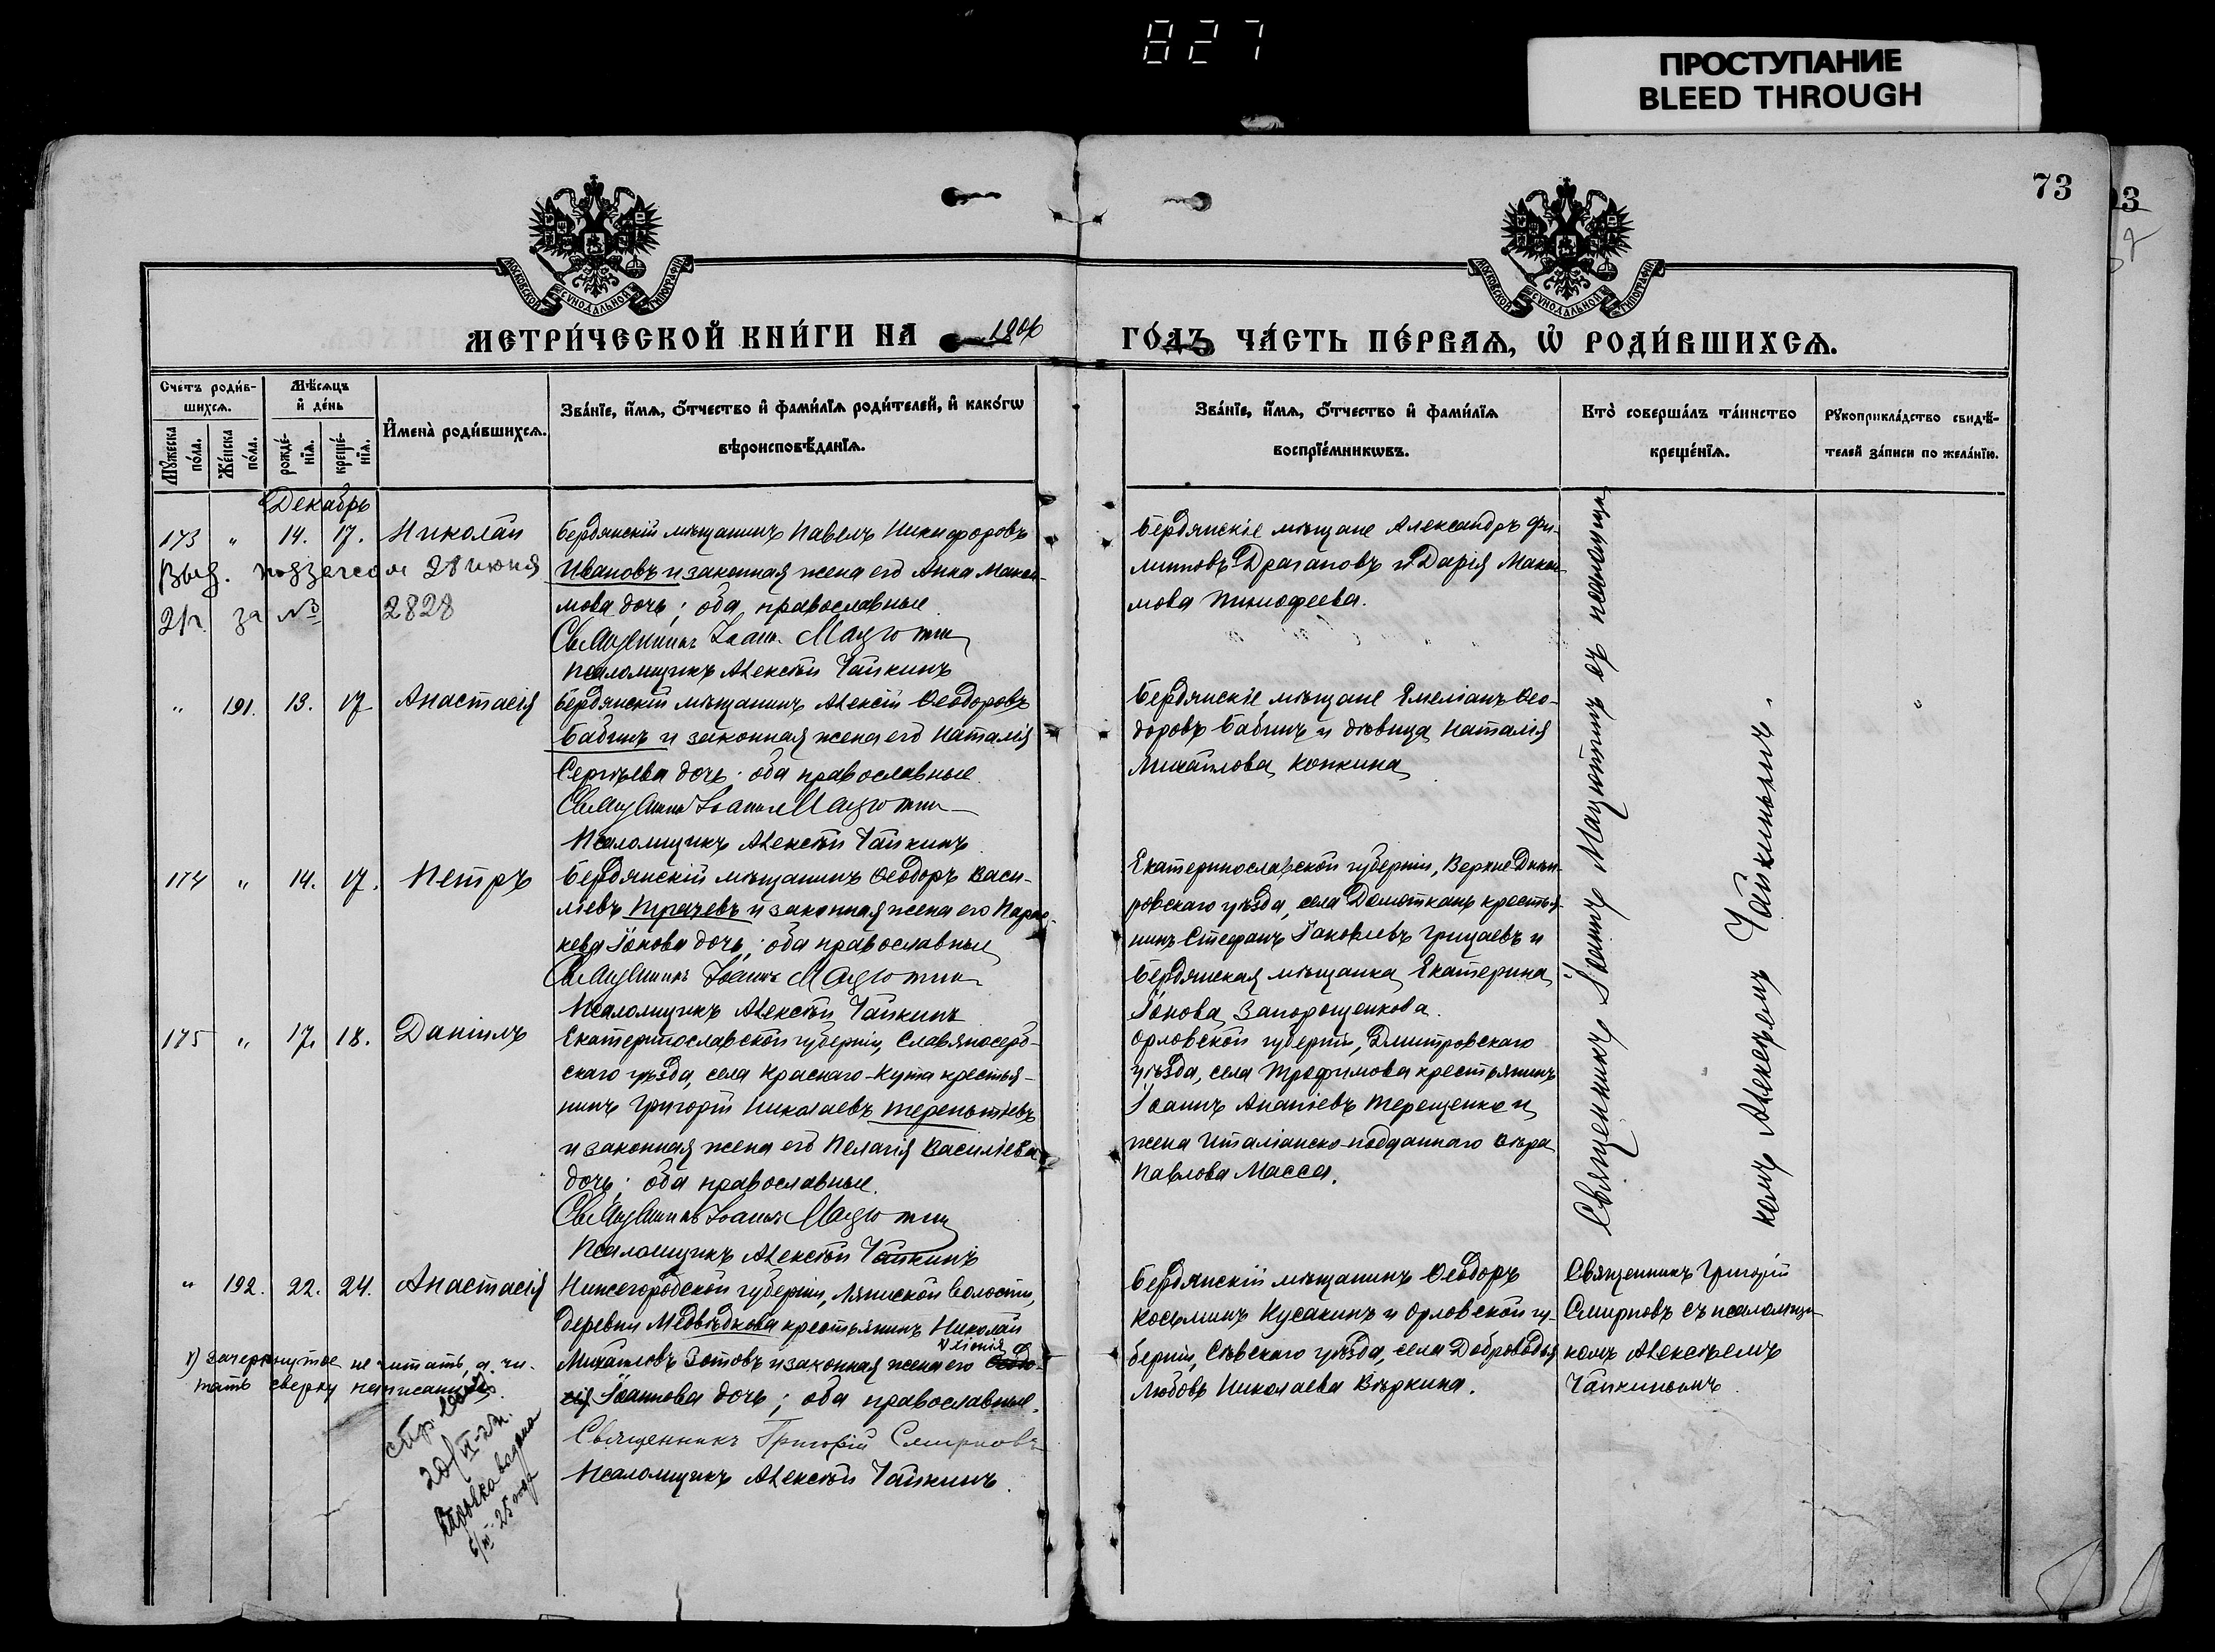 827
ПРОСТУПАНИЕ
BLEED THROUGH
73
МОСКОВСКОЙ СѴНОДАЛЬНОЙ ТИПОГРАФІИ
МОСКОВСКОЙ СѴНОДАЛЬНОЙ ТИПОГРАФІИ
МЕТРИ́ЧЕСКОЙ КНИ́ГИ НА 1906 ГО́ДЪ ЧА́СТЬ ПЕ́РВАѦ, Ѡ҆ РОДИ́ВШИХСѦ.
Счетъ роди́вшихсѧ.
Мꙋ́жеска по́ла.
Же́нска по́ла.
Мѣ́сѧцъ и҆ де́нь
рожде́нїѧ.
креще́нїѧ.
И҆мена̀ роди́вшихсѧ.
Зва́нїе, и҆́мѧ, ѻ҆́тчество и҆ фами́лїѧ роди́телей, и҆ како́гѡ
вѣроисповѣ́данїѧ.
Зва́нїе, и҆́мѧ, ѻ҆́тчество и҆ фами́лїѧ
воспрїе́мникѡвъ.
Кто̀ соверша́лъ та́инство
креще́нїѧ.
Рꙋкоприкла́дство свидѣ́-
телей за́писи по жела́нїю.
Декабрь
173 " 14. 17. Николай
Бердянскій мѣщанинъ Павелъ Никифоровъ
Ивановъ и законная жена его Анна Макси-
мова дочь; оба православные
Священникъ Іоаннъ Мазютин
Псаломщикъ Алексѣй Чайкинъ
28 июня
21г. за № 2828
Бердянскіе мѣщане Александръ Фи-
липповъ Драгановъ и Дарія Макси-
мова Тимофеева.
" 191. 13. 17 Анастасія
Бердянскій мѣщанинъ Алексій Ѳеодоровъ
Бабинъ и законная жена его Наталія
Сергѣева дочь; оба православные.
Священникъ Іоаннъ Мазютин
Псаломщикъ Алексѣй Чайкинъ
Бердянскіе мѣщане Емеліанъ Ѳео-
доровъ Бабинъ и дѣвица Наталія
Михайлова Копкина
174 " 14. 17. Петръ
Бердянскій мѣщанинъ Ѳеодоръ Васи-
ліевъ Ткачевъ и законная жена его Парас-
кева Іонова дочь; оба православные
Священникъ Іоаннъ Мазютин
Псаломщикъ Алексѣй Чайкинъ
Екатеринославской губерніи, Верхне Днѣп-
ровскаго уѣзда, села Домоткань крестья-
нинъ Стефанъ Іаковлевъ Грицаевъ и
Бердянская мѣщанка Екатерина
Іонова Запорощенкова.
175 " 17. 18. Даніилъ
Екатеринославской губерніи, Славяносерб-
скаго уѣзда, села Краснаго-Кута крестья-
нинъ Григорій Николаевъ Терентіевъ
и законная жена его Пелагія Василіева
дочь; оба православные.
Священникъ Іоаннъ Мазютин
Псаломщикъ Алексѣй Чайкинъ
Орловской губерніи, Дмитровскаго
уѣзда, села Трофимова крестьянинъ
Іоаннъ Ананіевъ Терещенко и
жена Италіанско-подданнаго Вѣра
Павлова Масса.
Священникъ Іоаннъ Мазютинъ съ псаломщи-
комъ Алексѣемъ Чайкинымъ.
" 192. 22. 24. Анастасія
Нижегородской губерніи, волости,
деревни Медвѣдкова крестьянинъ Николай
Михаиловъ Зотовъ и законная жена его
Іоаннова дочь; оба православные.
Священникъ Григорій Смирновъ
Псаломщикъ Алексѣй Чайкинъ.
Бердянскій мѣщанинъ Ѳеодоръ
Косьминъ Кусакинъ и Орловской гу-
берніи, Сѣвскаго уѣзда, села Доброводья
Любовь Николаева Вѣркина.
Священникъ Григорій
Смирновъ съ псаломщи-
комъ Алексѣемъ
Чайкинымъ
1) Зачеркнутое не читать, а чи-
тать сверху написанное.